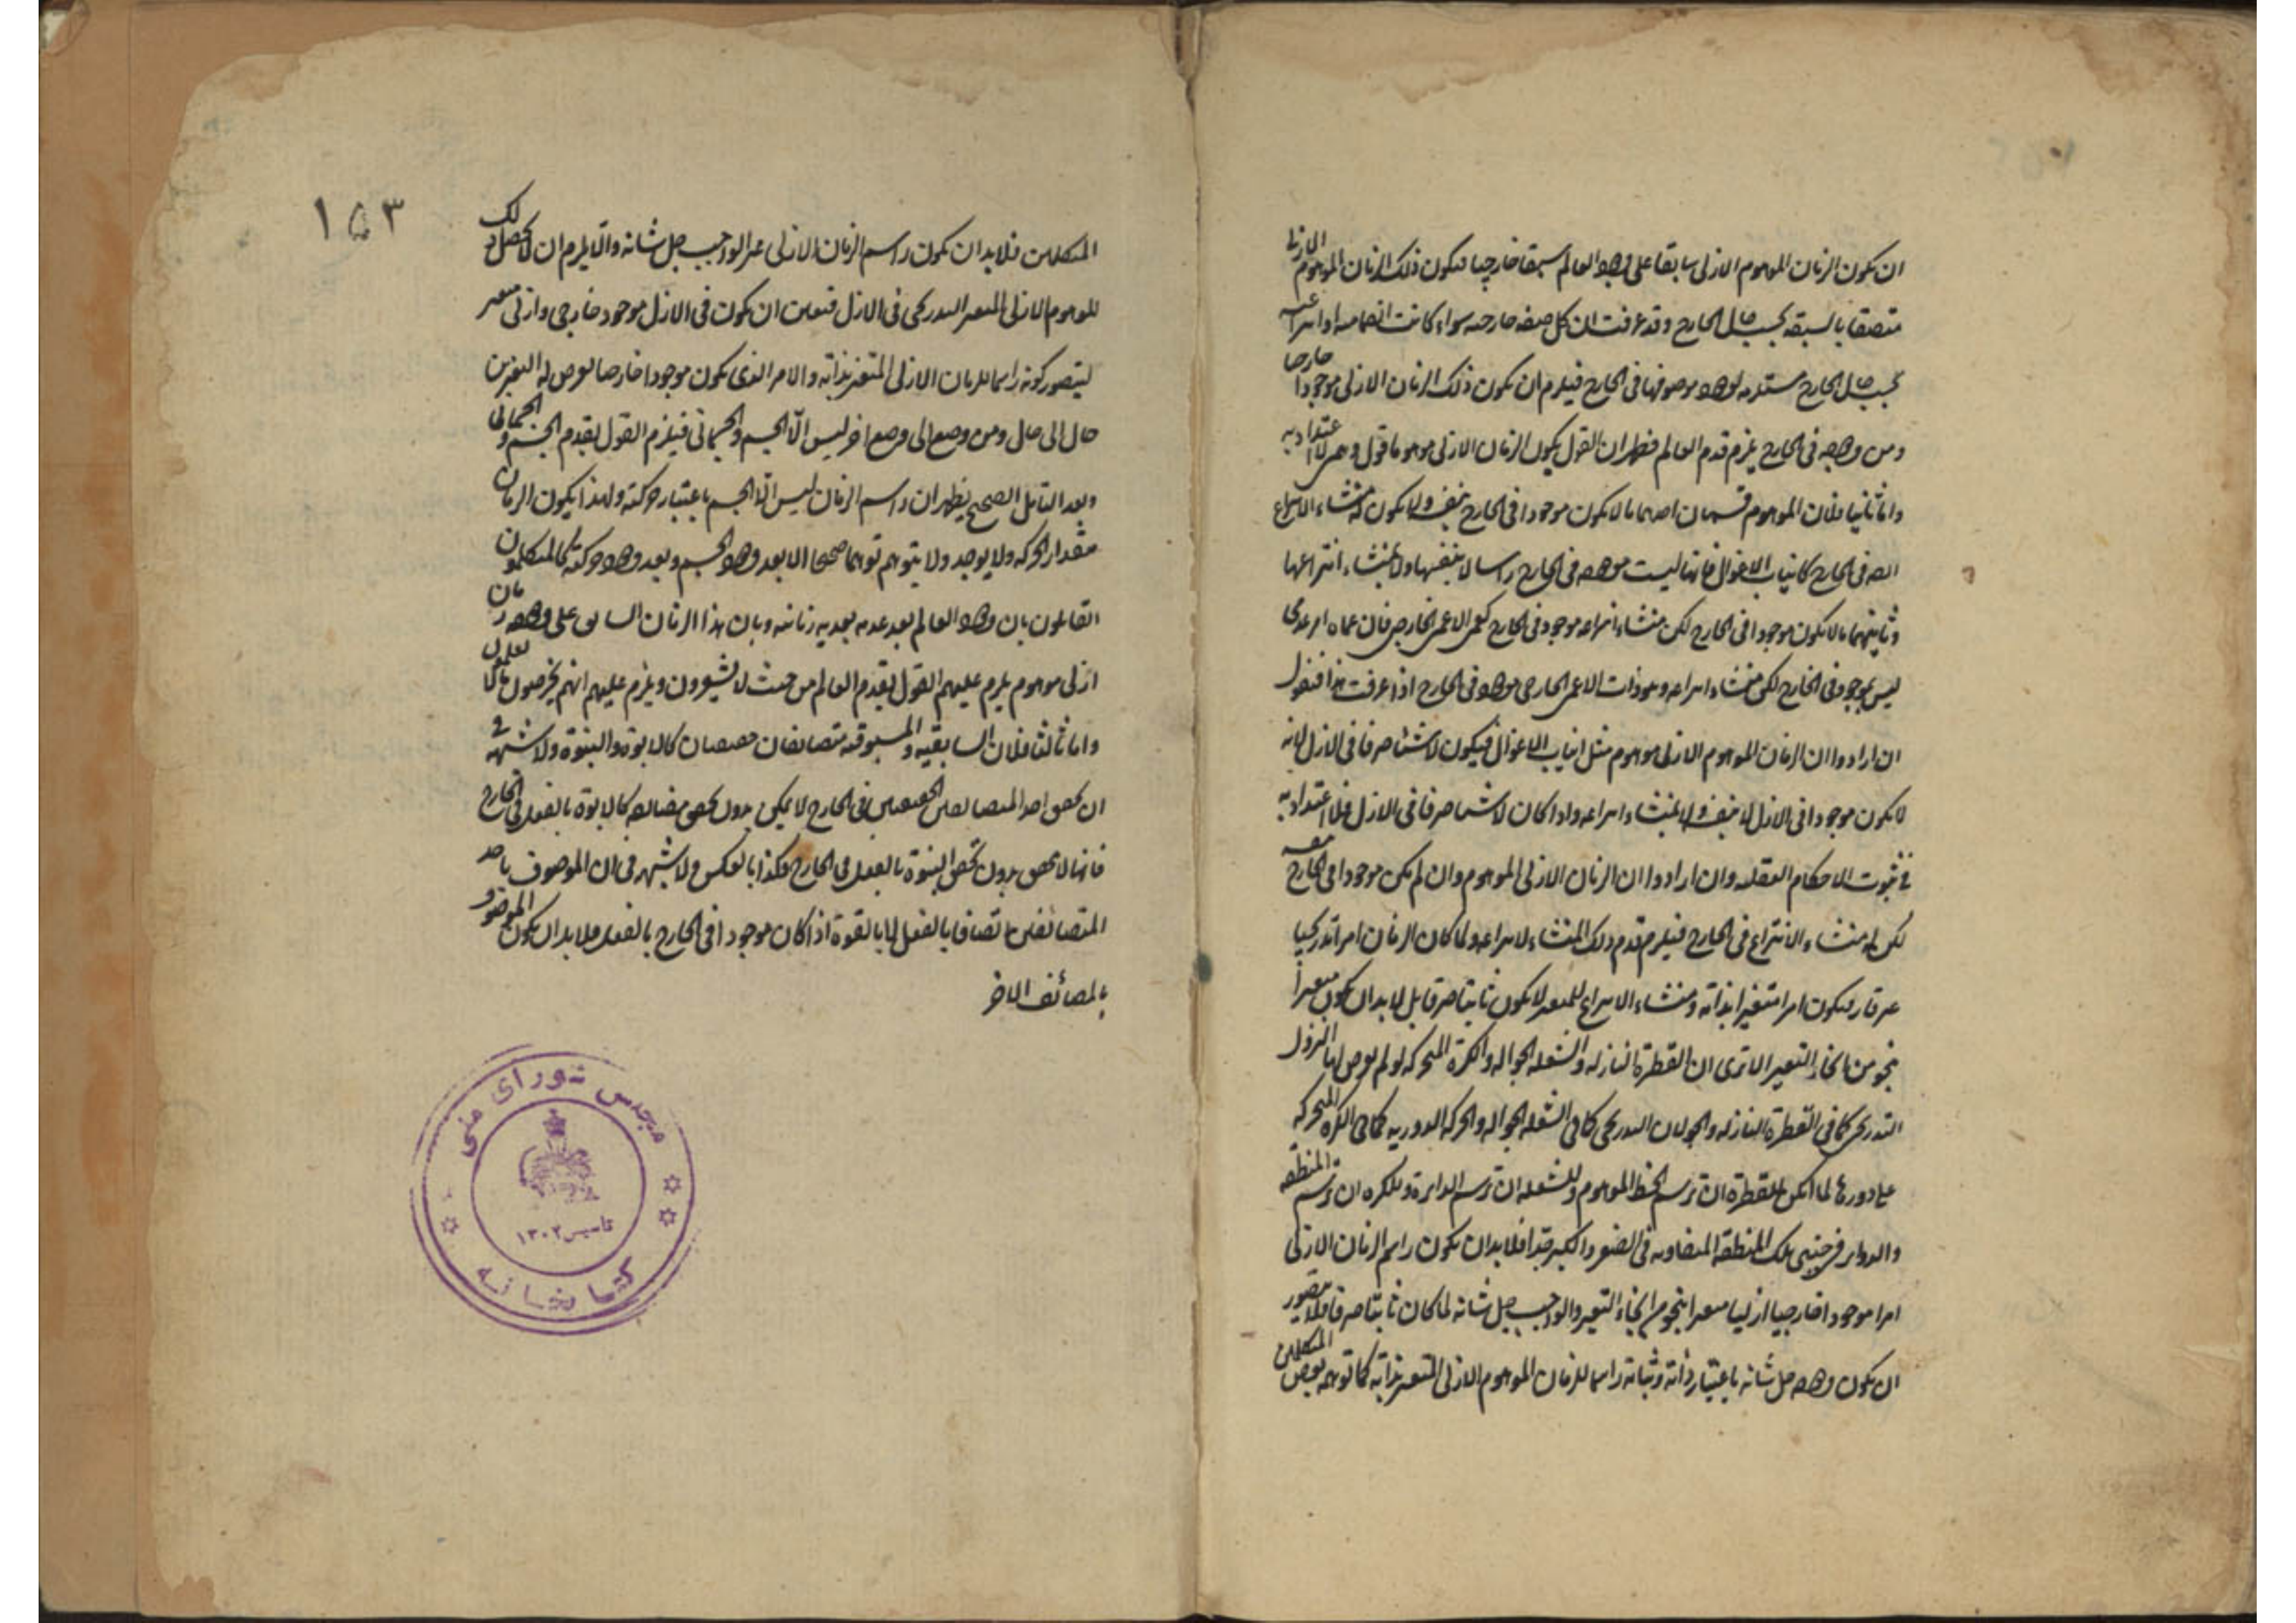 ان يكون الزمان الموهوم الازلى سابقا على وجود العالم سبقا خارجيا فيكون ذلك الزمان الموهوم الازلى
متصفا بالسبقه بحسب حال الخارج وقد عرفت ان كل صفه خارجيه سواء كانت انضماميه او انتزاعيه
بحسب حال الخارج مستلزمه لوجود موصوفها فى الخارج فيلزم ان يكون ذلك الزمان الازلى موجودا خارجيا
ومن وجوده فى الخارج يلزم قدم العالم فظهر ان القول بكون الزمان الازلى موهوما قول وهمى لا اعتداد به
واما ثانيا فلان الموهوم قسمان احدهما ما لا يكون موجودا فى الخارج بنفسه ولا يكون له منشاء الانتزاع
فى الخارج كانياب الاغوال فانها ليست موجوده فى الخارج راسا لا بنفسها ولا بمنشاء انتزاعها
وثانيهما ما لا يكون موجودا فى الخارج لكن منشاء انتزاعه موجود فى الخارج كعمى الاعمى الخارجى فان عماه امر عدمى
ليس بموجود فى الخارج لكن منشاء انتزاعه وهو ذات الاعمى الخارجى موجود فى الخارج اذا عرفت هذا فنقول
ان ارادوا ان الزمان الموهوم الازلى موهوم مثل انياب الاغوال فيكون لا شيئا صرفا فى الازل لانه
لا يكون موجودا فى الازل لا بنفسه ولا بمنشاء انتزاعه واذا كان لا شيئا صرفا فى الازل فلا اعتداد به
فى ثبوت الاحكام العقليه وان ارادوا ان الزمان الازلى الموهوم وان لم يكن موجودا فى الخارج بنفسه
لكن له منشاء الانتزاع فى الخارج فيلزم قدم ذلك المنشاء لانتزاعه ولما كان الزمان امرا تدريجيا
غير قار فيكون امرا متغيرا بذاته ومنشاء الانتزاع للمتغير لا يكون ثابتا صرفا بل لا بد ان يكون متغيرا
بنحو من انحاء التغير الا ترى ان القطرة النازله والشعله الجواله والكرة المتحركه لو لم يعرض لها النزول
التدريجى كما فى القطرة النازله والجولان التدريجى كما فى الشعله الجواله والحركه الدوريه كما فى الكره المتحركه
على دورها لما امكن للقطره ان ترسم الخط الموهوم وللشعله ان ترسم الدايرة وللكره ان ترسم المنطقه
والدواير فى جنبى تلك المنطقه المتفاوته فى الصغر والكبر جدا فلا بد ان يكون راسم الزمان الازلى
امرا موجودا خارجيا ازليا متغيرا بنحو من انحاء التغير والواجب جل شانه لما كان ثابتا صرفا فلا يتصور
ان يكون وجوده جل شانه باعتبار ذاته وثباته راسما للزمان الموهوم الازلى المتغير بذاته كما توهمه بعض المتكلمين
١٥٣
المتكلمين فلا بد ان يكون راسم الزمان الازلى غير الواجب جل شانه والا يلزم ان لا يحصل ذلك
الموهوم الازلى المتغير التدريجى فى الازل فتعين ان يكون فى الازل موجود خارجى وازلى متغير
ليتصور كونه راسما للزمان الازلى المتغير بذاته والامر الذى يكون موجودا خارجيا يعرض له التغير من
حال الى حال ومن وضع الى وضع اخر ليس الا الجسم والجسمانى فيلزم القول بقدم الجسم والجسمانى
وبعد التامل الصحيح يظهر ان راسم الزمان ليس الا الجسم باعتبار حركته ولهذا يكون الزمان
مقدار الحركه ولا يوجد ولا يتوهم توهما صحيحا الا بعد وجود الجسم وبعد وجود حركته فالمتكلمون
القائلون بان وجود العالم بعد عدمه بعديه زمانيه وبان هذا الزمان السابق على وجوده زمان
ازلى موهوم يلزم عليهم القول بقدم العالم من حيث لا يشعرون ويلزم عليهم انهم يخرصون ما لا يعلمون
واما ثالثا فلان السابقيه والمسبوقيه متضايفان حقيقيان كالابوة والبنوة ولا شبهه فى
ان تحقق احد المتضايفين الحقيقيين فى الخارج لا يمكن بدون تحقق مضايفه كالابوة بالفعل فى الخارج
فانها لا تتحقق بدون تحقق البنوة بالفعل فى الخارج وكذا بالعكس ولا شبهه فى ان الموصوف باحد
المتضائفين اتصافا بالفعل لا بالقوة اذا كان موجودا فى الخارج بالفعل فلا بد ان يكون الموصوف
بالمضائف الاخر
مجلس شورای ملی
تاسیس ١٣٠٢
کتابخانه